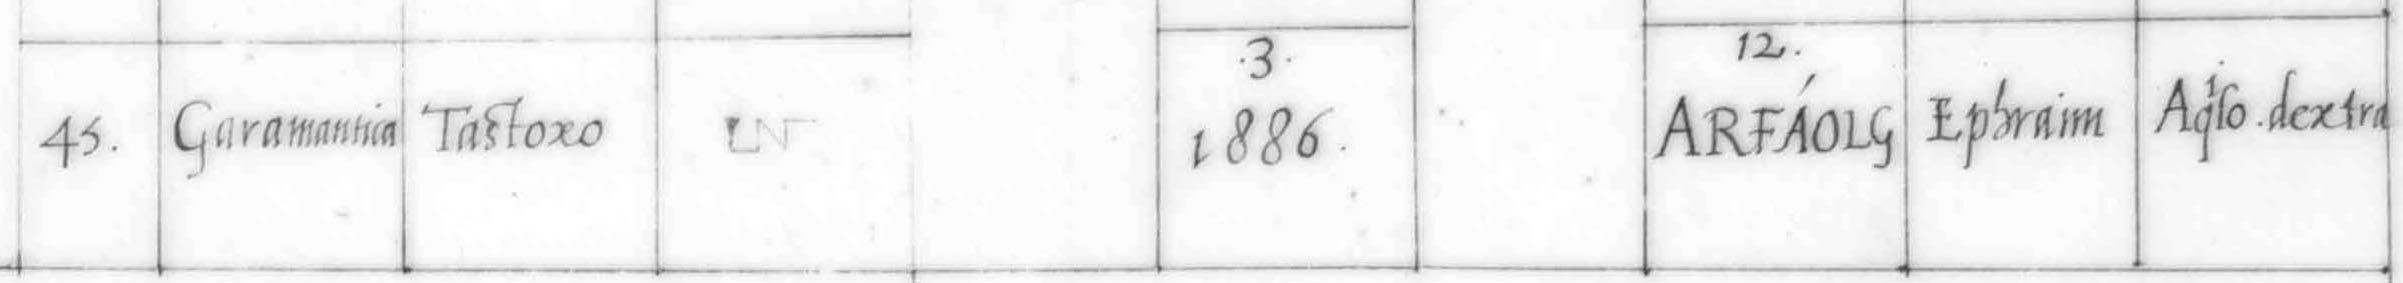 .3. 12.
45. Garamantica Tastoxo 1886. ARFÁOLG Ephraim Aq̇lo. dextra